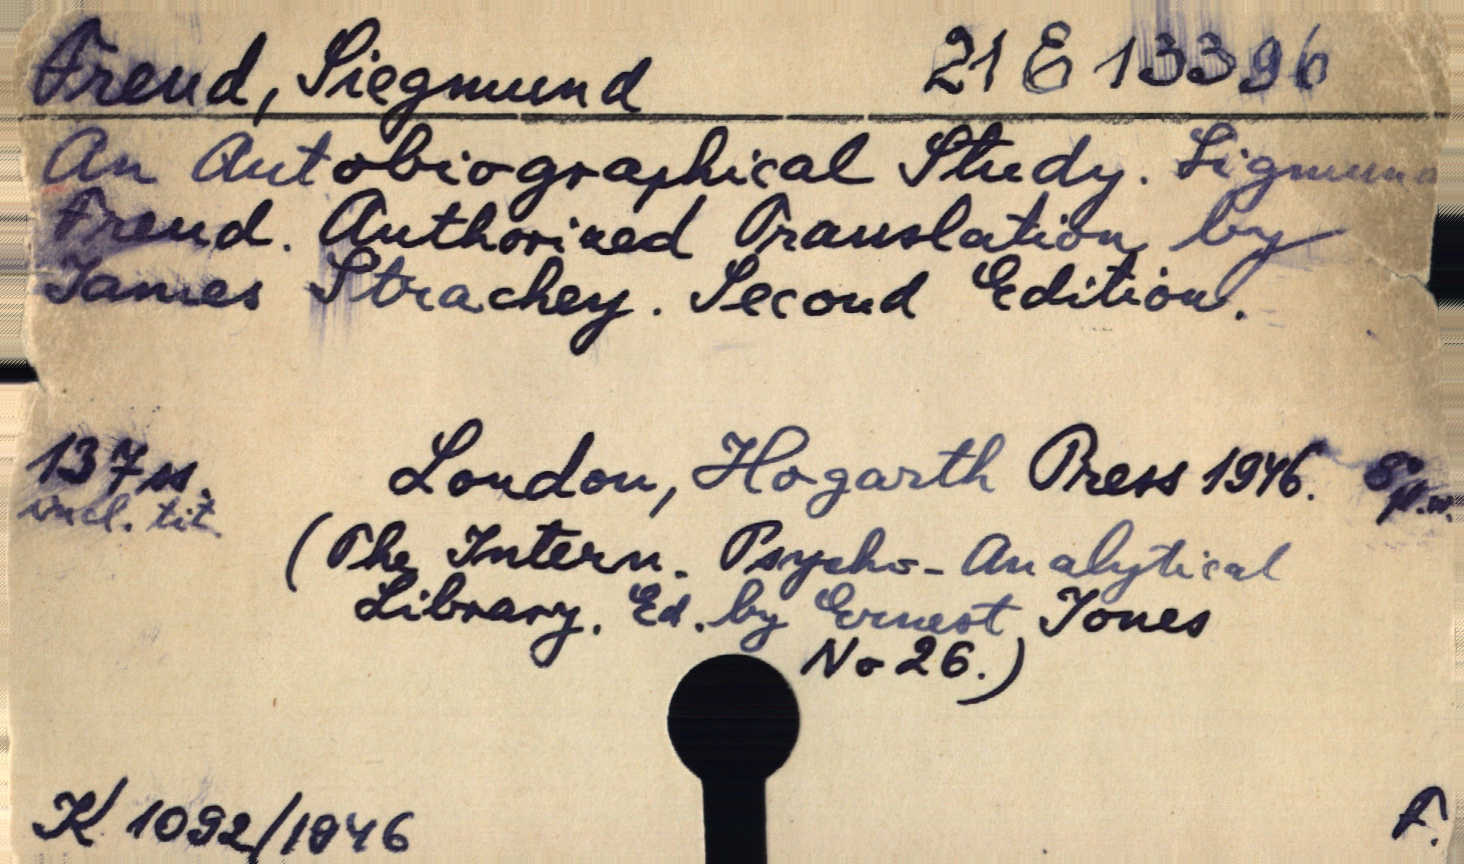 Freud, Siegmund 21 E 13396
An Autobiographical Study. Sigmund
Freud. Authorized Translation by
James Strachey. Second Edition.
137 ss. London, Hogarth Press 1946. 8°
incl. tit.
(The Intern. Psycho-Analytical
Library. Ed. by Ernest Jones
No 26.)
K 1092/1946 F.